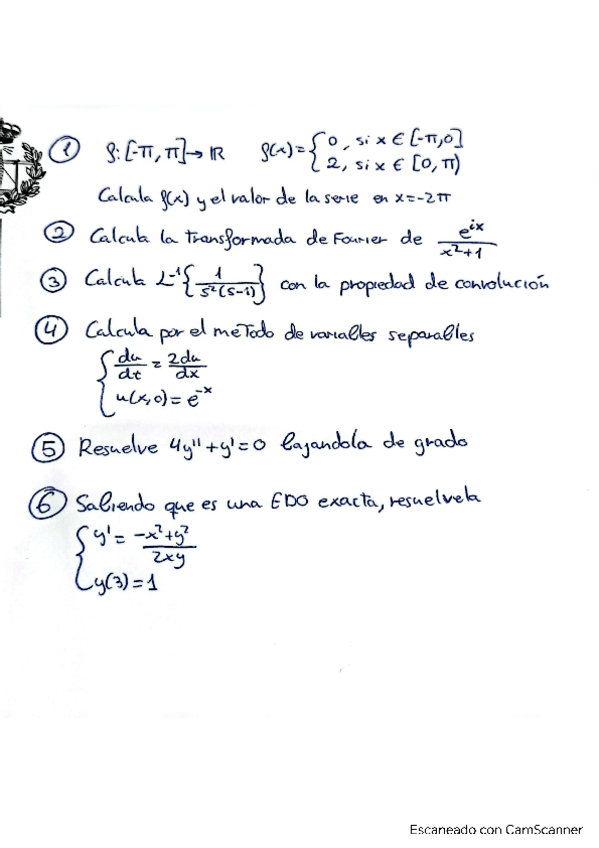 ① f: [-π, π] → ℝ f(x) = { 0, si x ∈ [-π, 0]
2, si x ∈ [0, π)
Calcula f(x) y el valor de la serie en x = -2π
② Calcula la transformada de Fourier de e^{ix} / (x²+1)
③ Calcula L⁻¹{ 1 / (s²(s-1)) } con la propiedad de convolución
④ Calcula por el método de variables separables
{ du/dt = 2du/dx
u(x,0) = e^{-x}
⑤ Resuelve 4y'' + y' = 0 bajandola de grado
⑥ Sabiendo que es una EDO exacta, resuelvela
{ y' = (-x²+y²) / 2xy
y(3) = 1
Escaneado con CamScanner